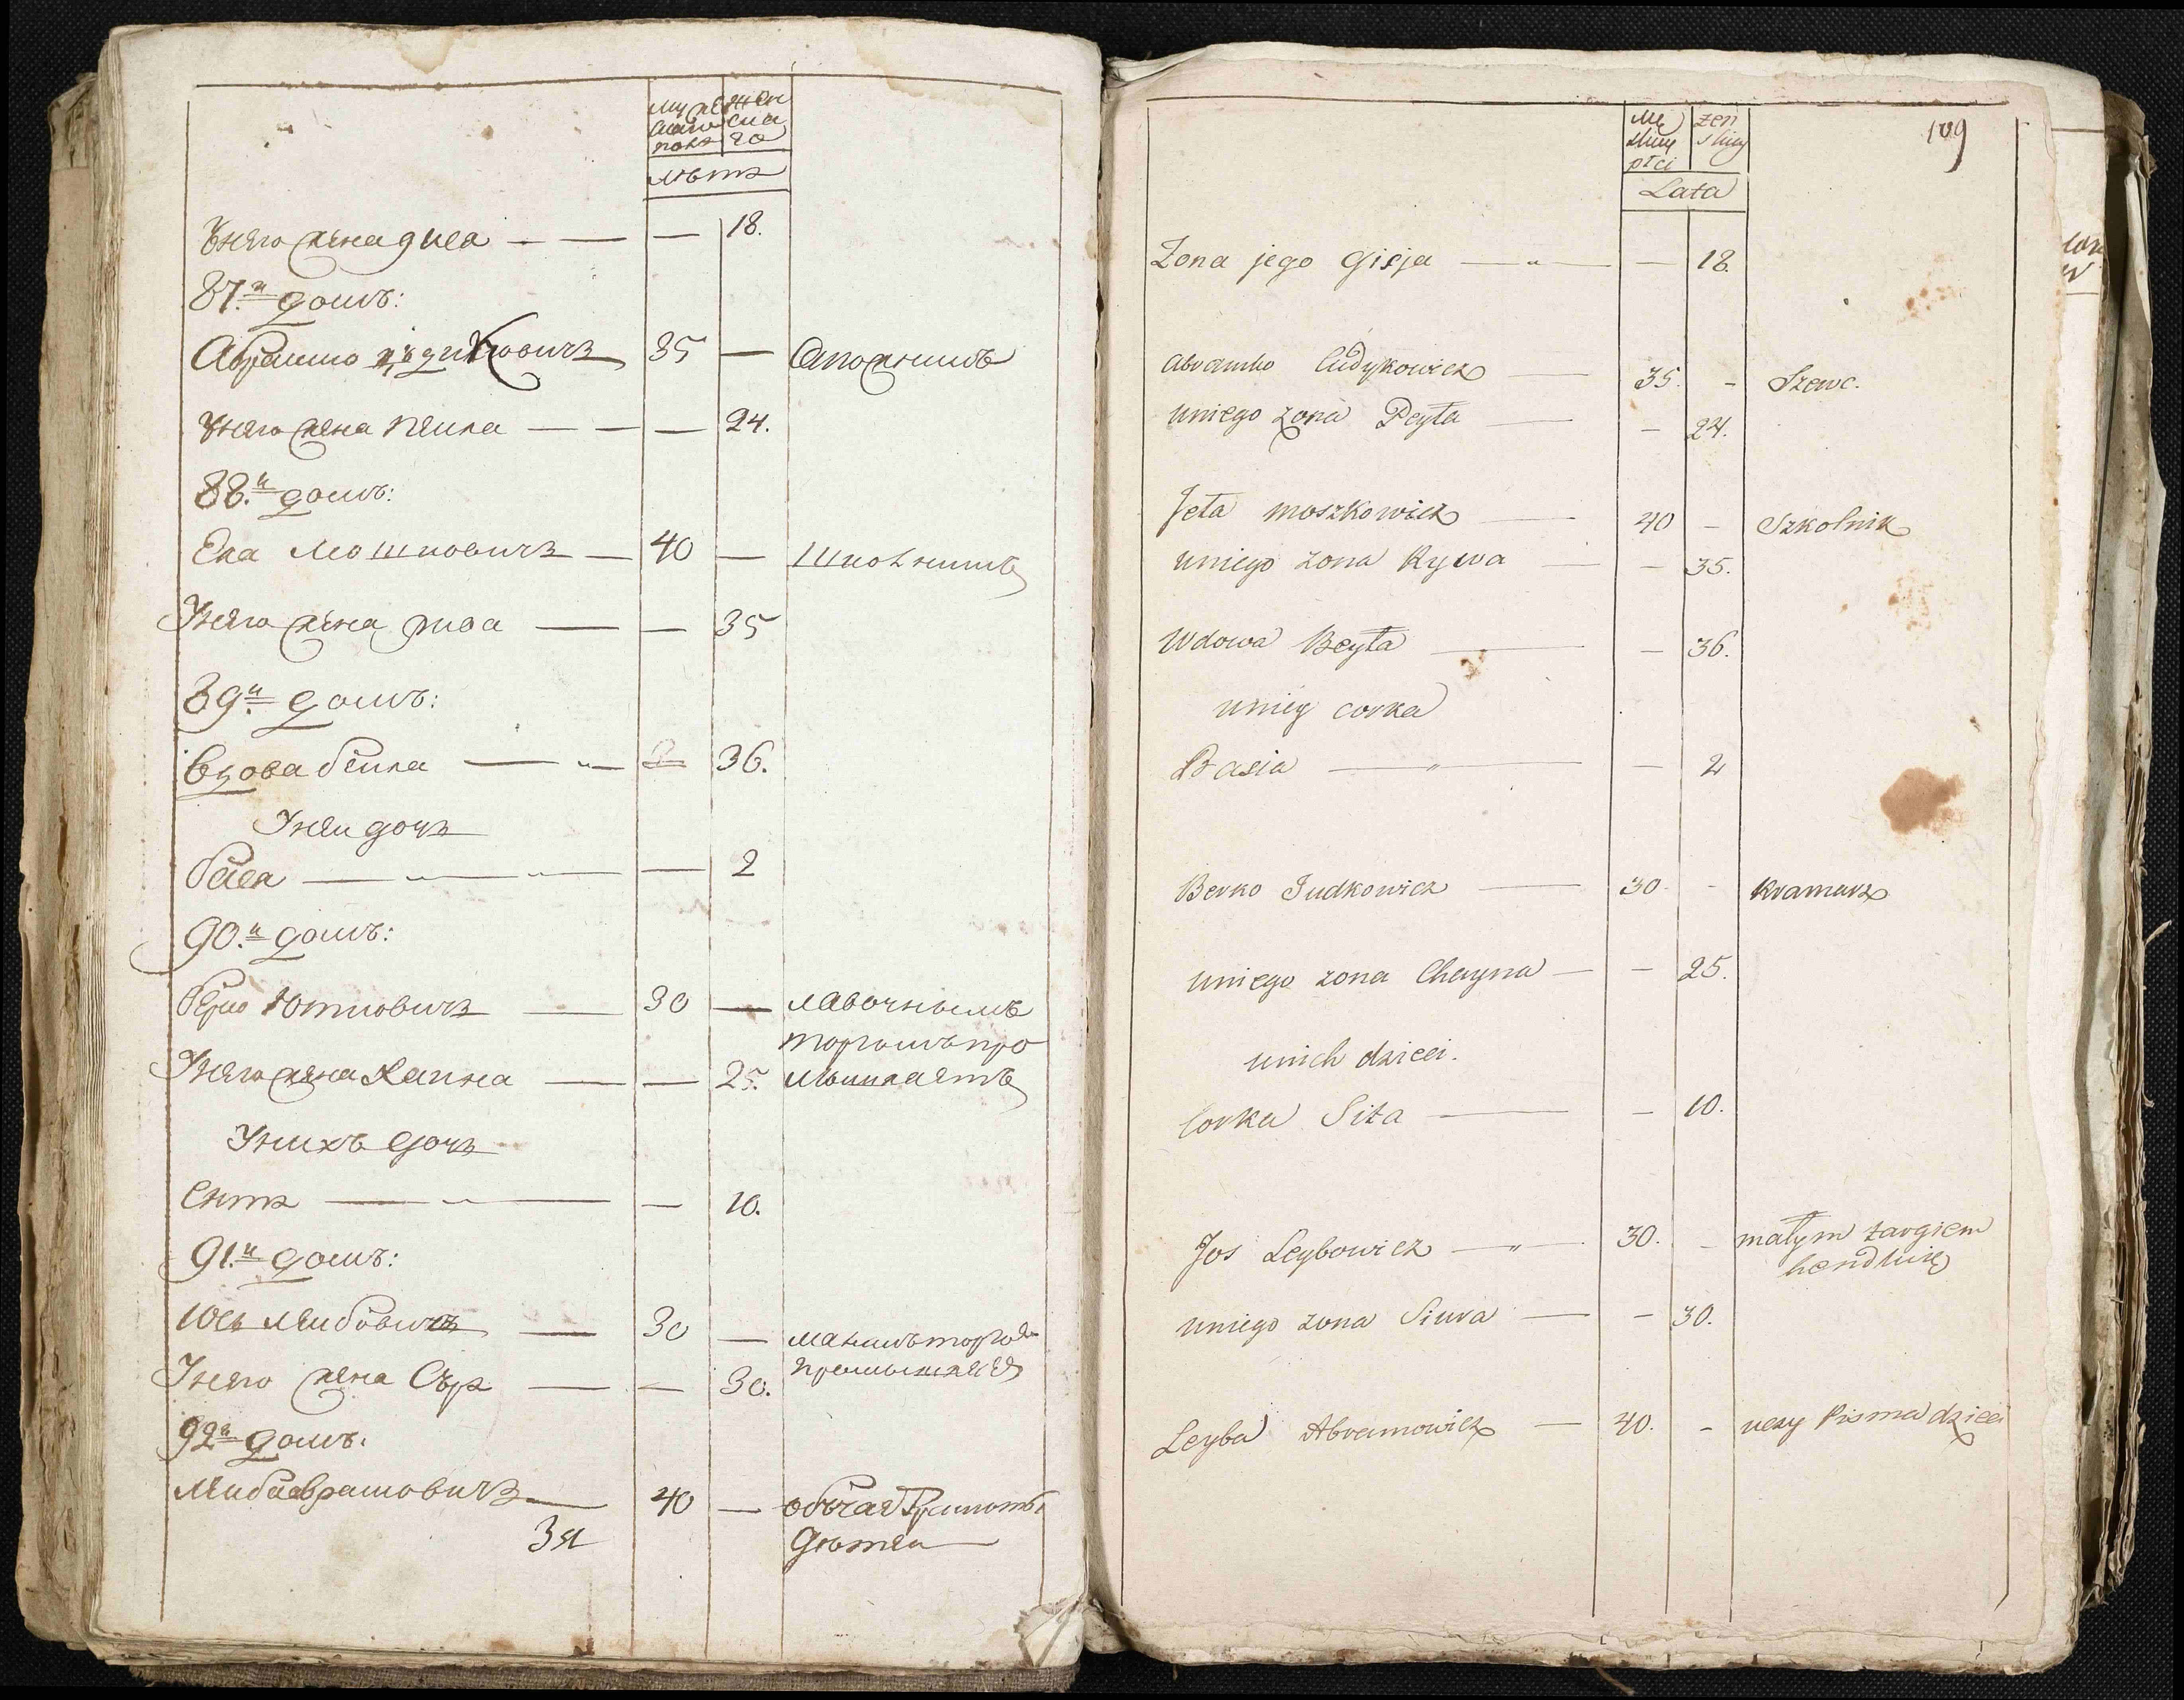 муже жен
скаго ска
пола го
лѣтъ
У него жена дися — — — 18.
87.й домъ:
Абрамко цудиковичъ 35 — Сапожникъ
У него жена пейла — — — 24.
88.й домъ:
Ела Мошковичъ — 40 — Школникъ
У него жена рива — — 35
89.й домъ:
Вдова бейла — „ — 36.
У ней дочь
бася — „ — „ — — 2
90.й домъ:
берко Ютковичъ — 30 — лавочнымъ
торгомъ про
У него жена Хаина — — 25. мышляетъ
У нихъ дочь
Ситъ — „ — — 10.
91.й домъ:
Юсь Лейбовичъ — 30 — малимъ торго
У него жена Сѣра — — 30. промышляе
92й домъ.
Лейба абрамовичъ — 40 — обучает грамоты
Зя детей
109
Mę żeń
skiey skiey
płci
Lata
Żona jego Gisja — „ — — 18.
Abramko Cudykowicz — 35. - Szewc.
uniego żona Peyła — - 24.
Jeta Moszkowicz — 40 - Szkolnik
uniego zona Rywa — - 35.
Wdowa Beyła — - 36.
uniey corka
Basia — „ — - 2
Berko Judkowicz — 30. - Kramarz
uniego zona Chayna — - 25.
unich dzieci.
Corka Sita — - 10.
Jos Leybowicz — „ — 30. - małym targiem
handluie
uniego zona Siura — - 30.
Leyba Abramowicz — 40. - uczy Pisma dzieci